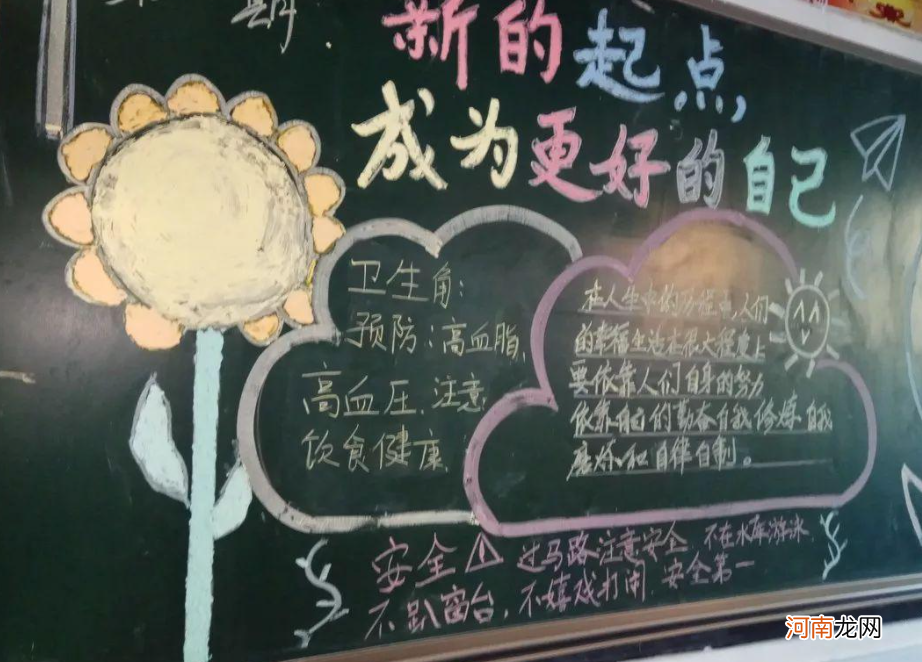 期.
新的起点,
成为更好的自己
卫生角:
预防:高血脂、
高血压、注意
饮食健康
在人生中的历程中,人们
的幸福生活在很大程度上
要依靠人们自身的努力
依靠自己的勤奋自我修炼自我
磨炼和自律自制。
安全 过马路注意安全 不在水库游泳
不趴窗台,不嬉戏打闹 安全第一
河南龙网